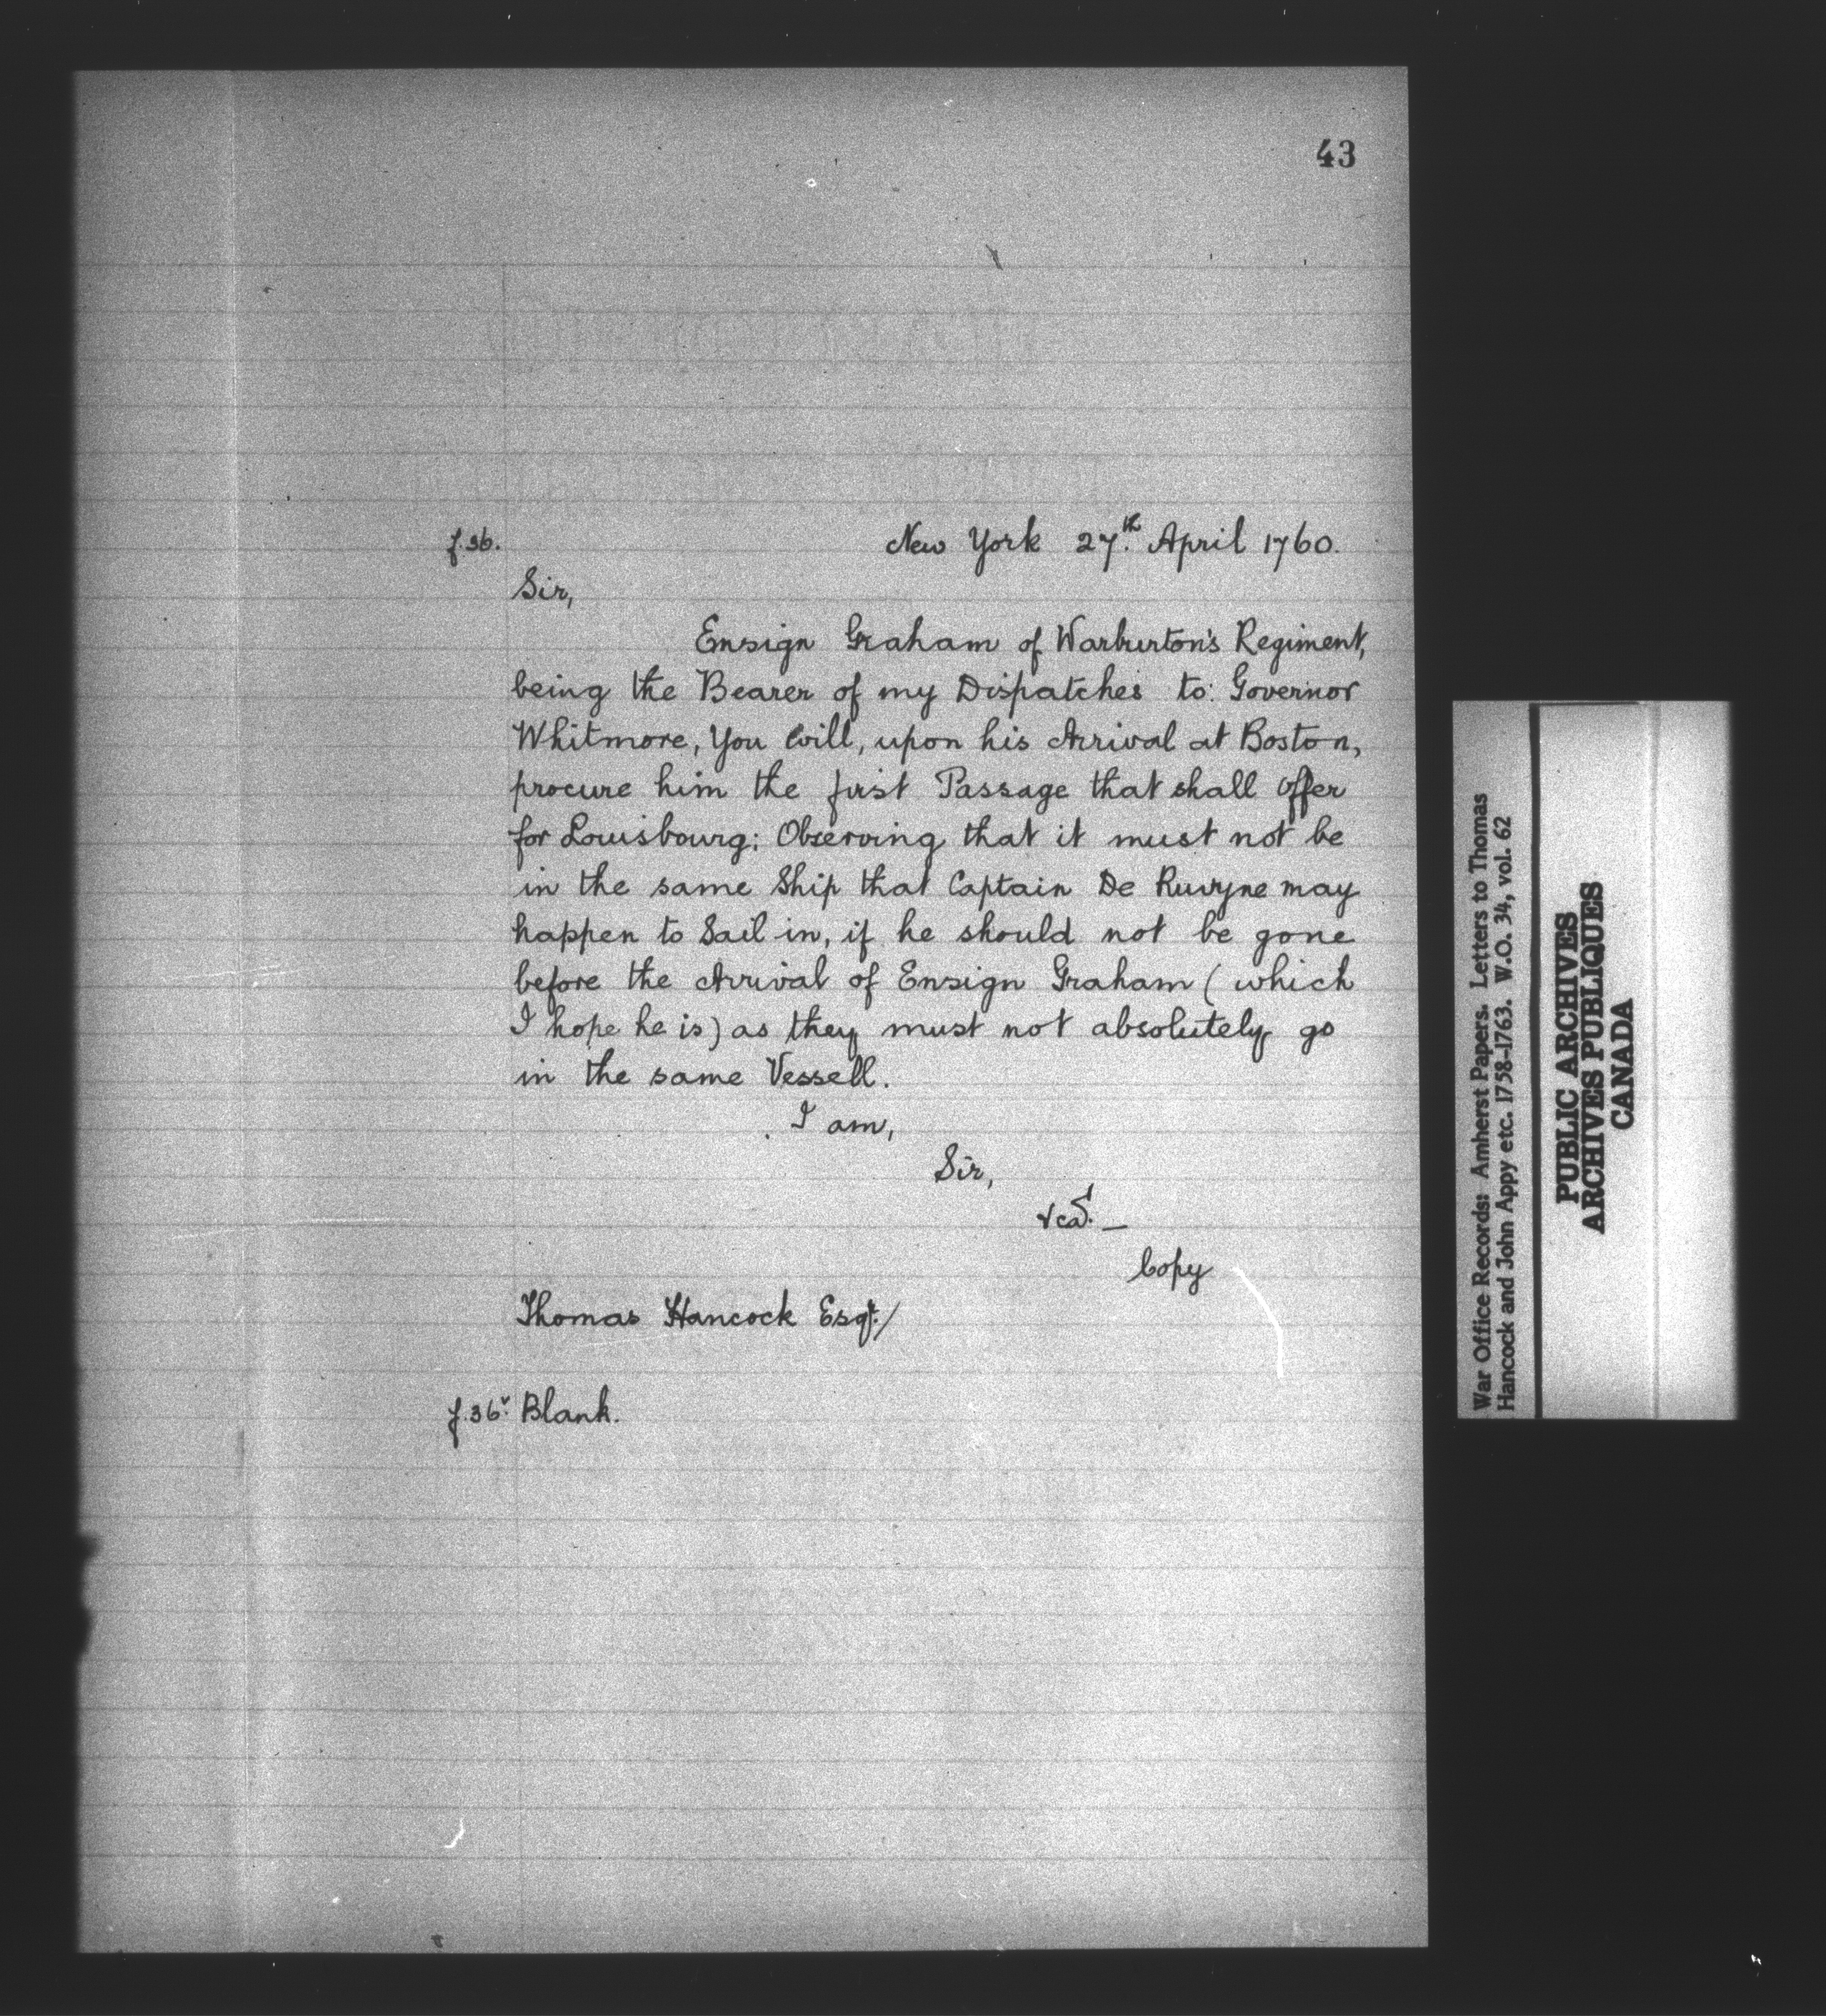 43
f.36.
New York 27.th April 1760.
Sir,
Ensign Graham of Warburton's Regiment,
being the Bearer of my Dispatches to Governor
Whitmore, You Will, upon his Arrival at Boston,
procure him the first Passage that shall Offer
for Louisbourg; Observing that it must not be
in the same Ship that Captain De Ruvyne may
happen to Sail in, if he should not be gone
before the Arrival of Ensign Graham (which
I hope he is) as they must not absolutely go
in the same Vessell.
I am,
Sir,
&ca. —
Copy
Thomas Hancock Esqr./
f.36v. Blank.
War Office Records: Amherst Papers. Letters to Thomas
Hancock and John Appy etc. 1758-1763. W.O. 34, vol. 62
PUBLIC ARCHIVES
ARCHIVES PUBLIQUES
CANADA